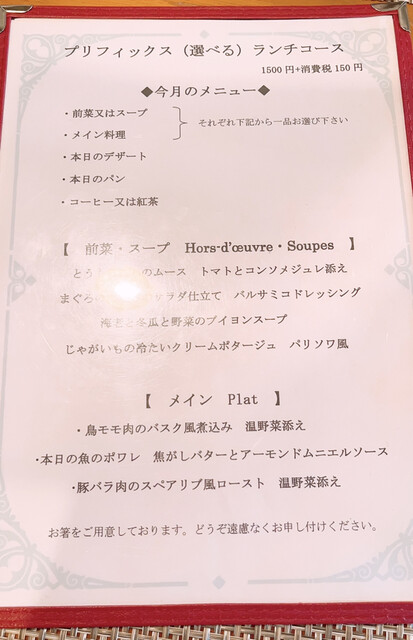 プリフィックス（選べる）ランチコース
1500円+消費税150円
◆今月のメニュー◆
・前菜又はスープ
・メイン料理
それぞれ下記から一品お選び下さい
・本日のデザート
・本日のパン
・コーヒー又は紅茶
【 前菜・スープ Hors-d'œuvre・Soupes 】
とう のムース トマトとコンソメジュレ添え
まぐろ ラダ仕立て バルサミコドレッシング
海老と冬瓜と野菜のブイヨンスープ
じゃがいもの冷たいクリームポタージュ パリソワ風
【 メイン Plat 】
・鳥モモ肉のバスク風煮込み 温野菜添え
・本日の魚のポワレ 焦がしバターとアーモンドムニエルソース
・豚バラ肉のスペアリブ風ロースト 温野菜添え
お箸をご用意しております。どうぞ遠慮なくお申し付けください。